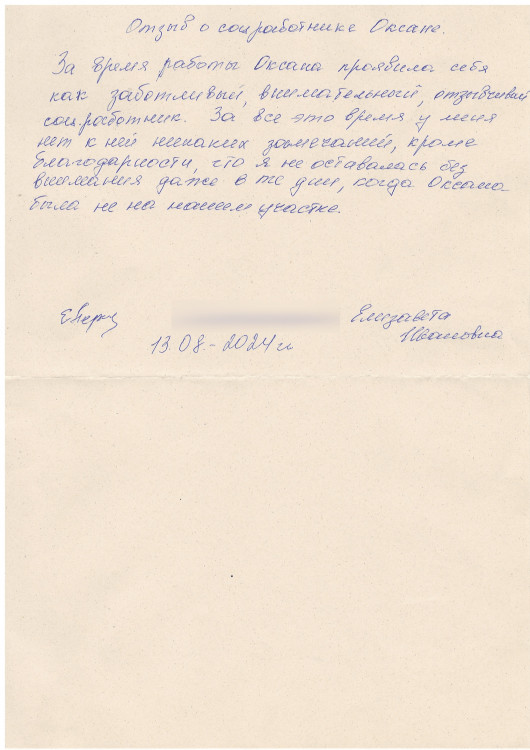 Отзыв о соц.работнике Оксане.
За время работы Оксана проявила себя
как заботливый, внимательный, отзывчивый
соц.работник. За все это время у меня
нет к ней никаких замечаний, кроме
благодарности, что я не оставалась без
внимания даже в те дни, когда Оксана
была не на нашем участке.
Елизавета
Ивановна
13.08.-2024г.